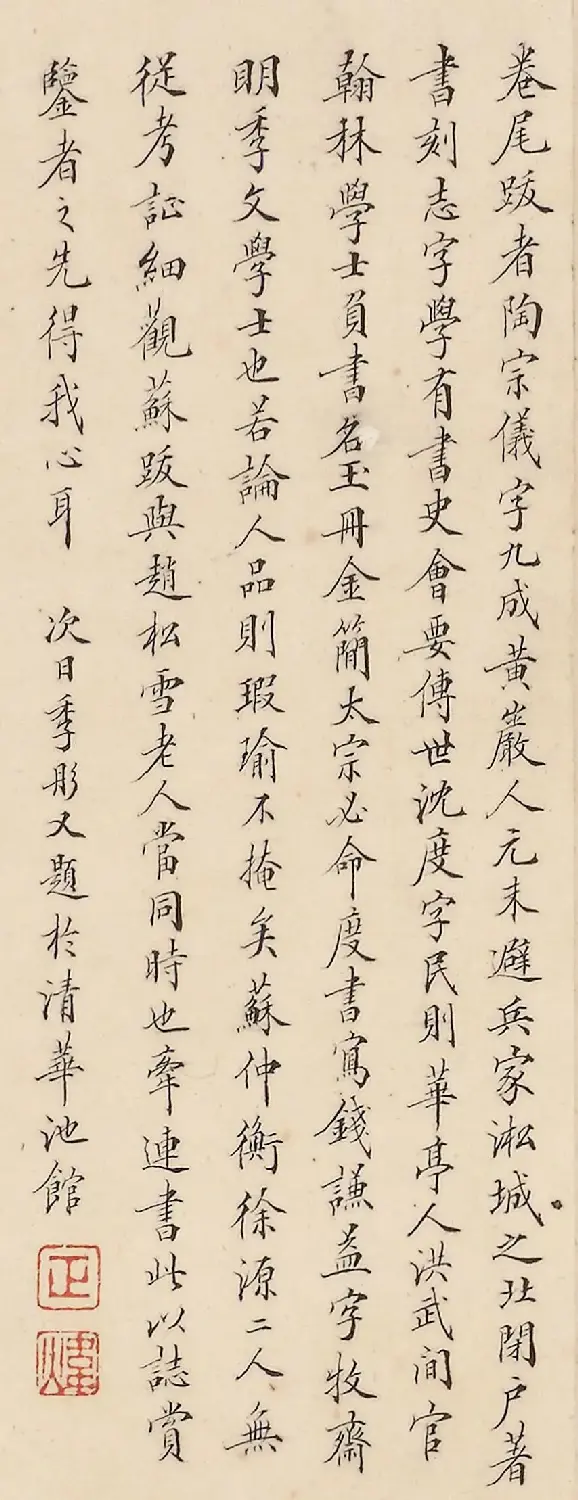 卷尾跋者陶宗儀字九成黃巖人元末避兵家淞城之北閉戶著
書刻志字學有書史會要傳世沈度字民則華亭人洪武間官
翰林學士負書名玉冊金簡太宗必命度書寫錢謙益字牧齋
明季文學士也若論人品則瑕瑜不掩矣蘇仲衡徐源二人無
從考証細觀蘇跋與趙松雪老人當同時也牽連書此以誌賞
鑒者之先得我心耳 次日季彤又題於清華池館
正煒